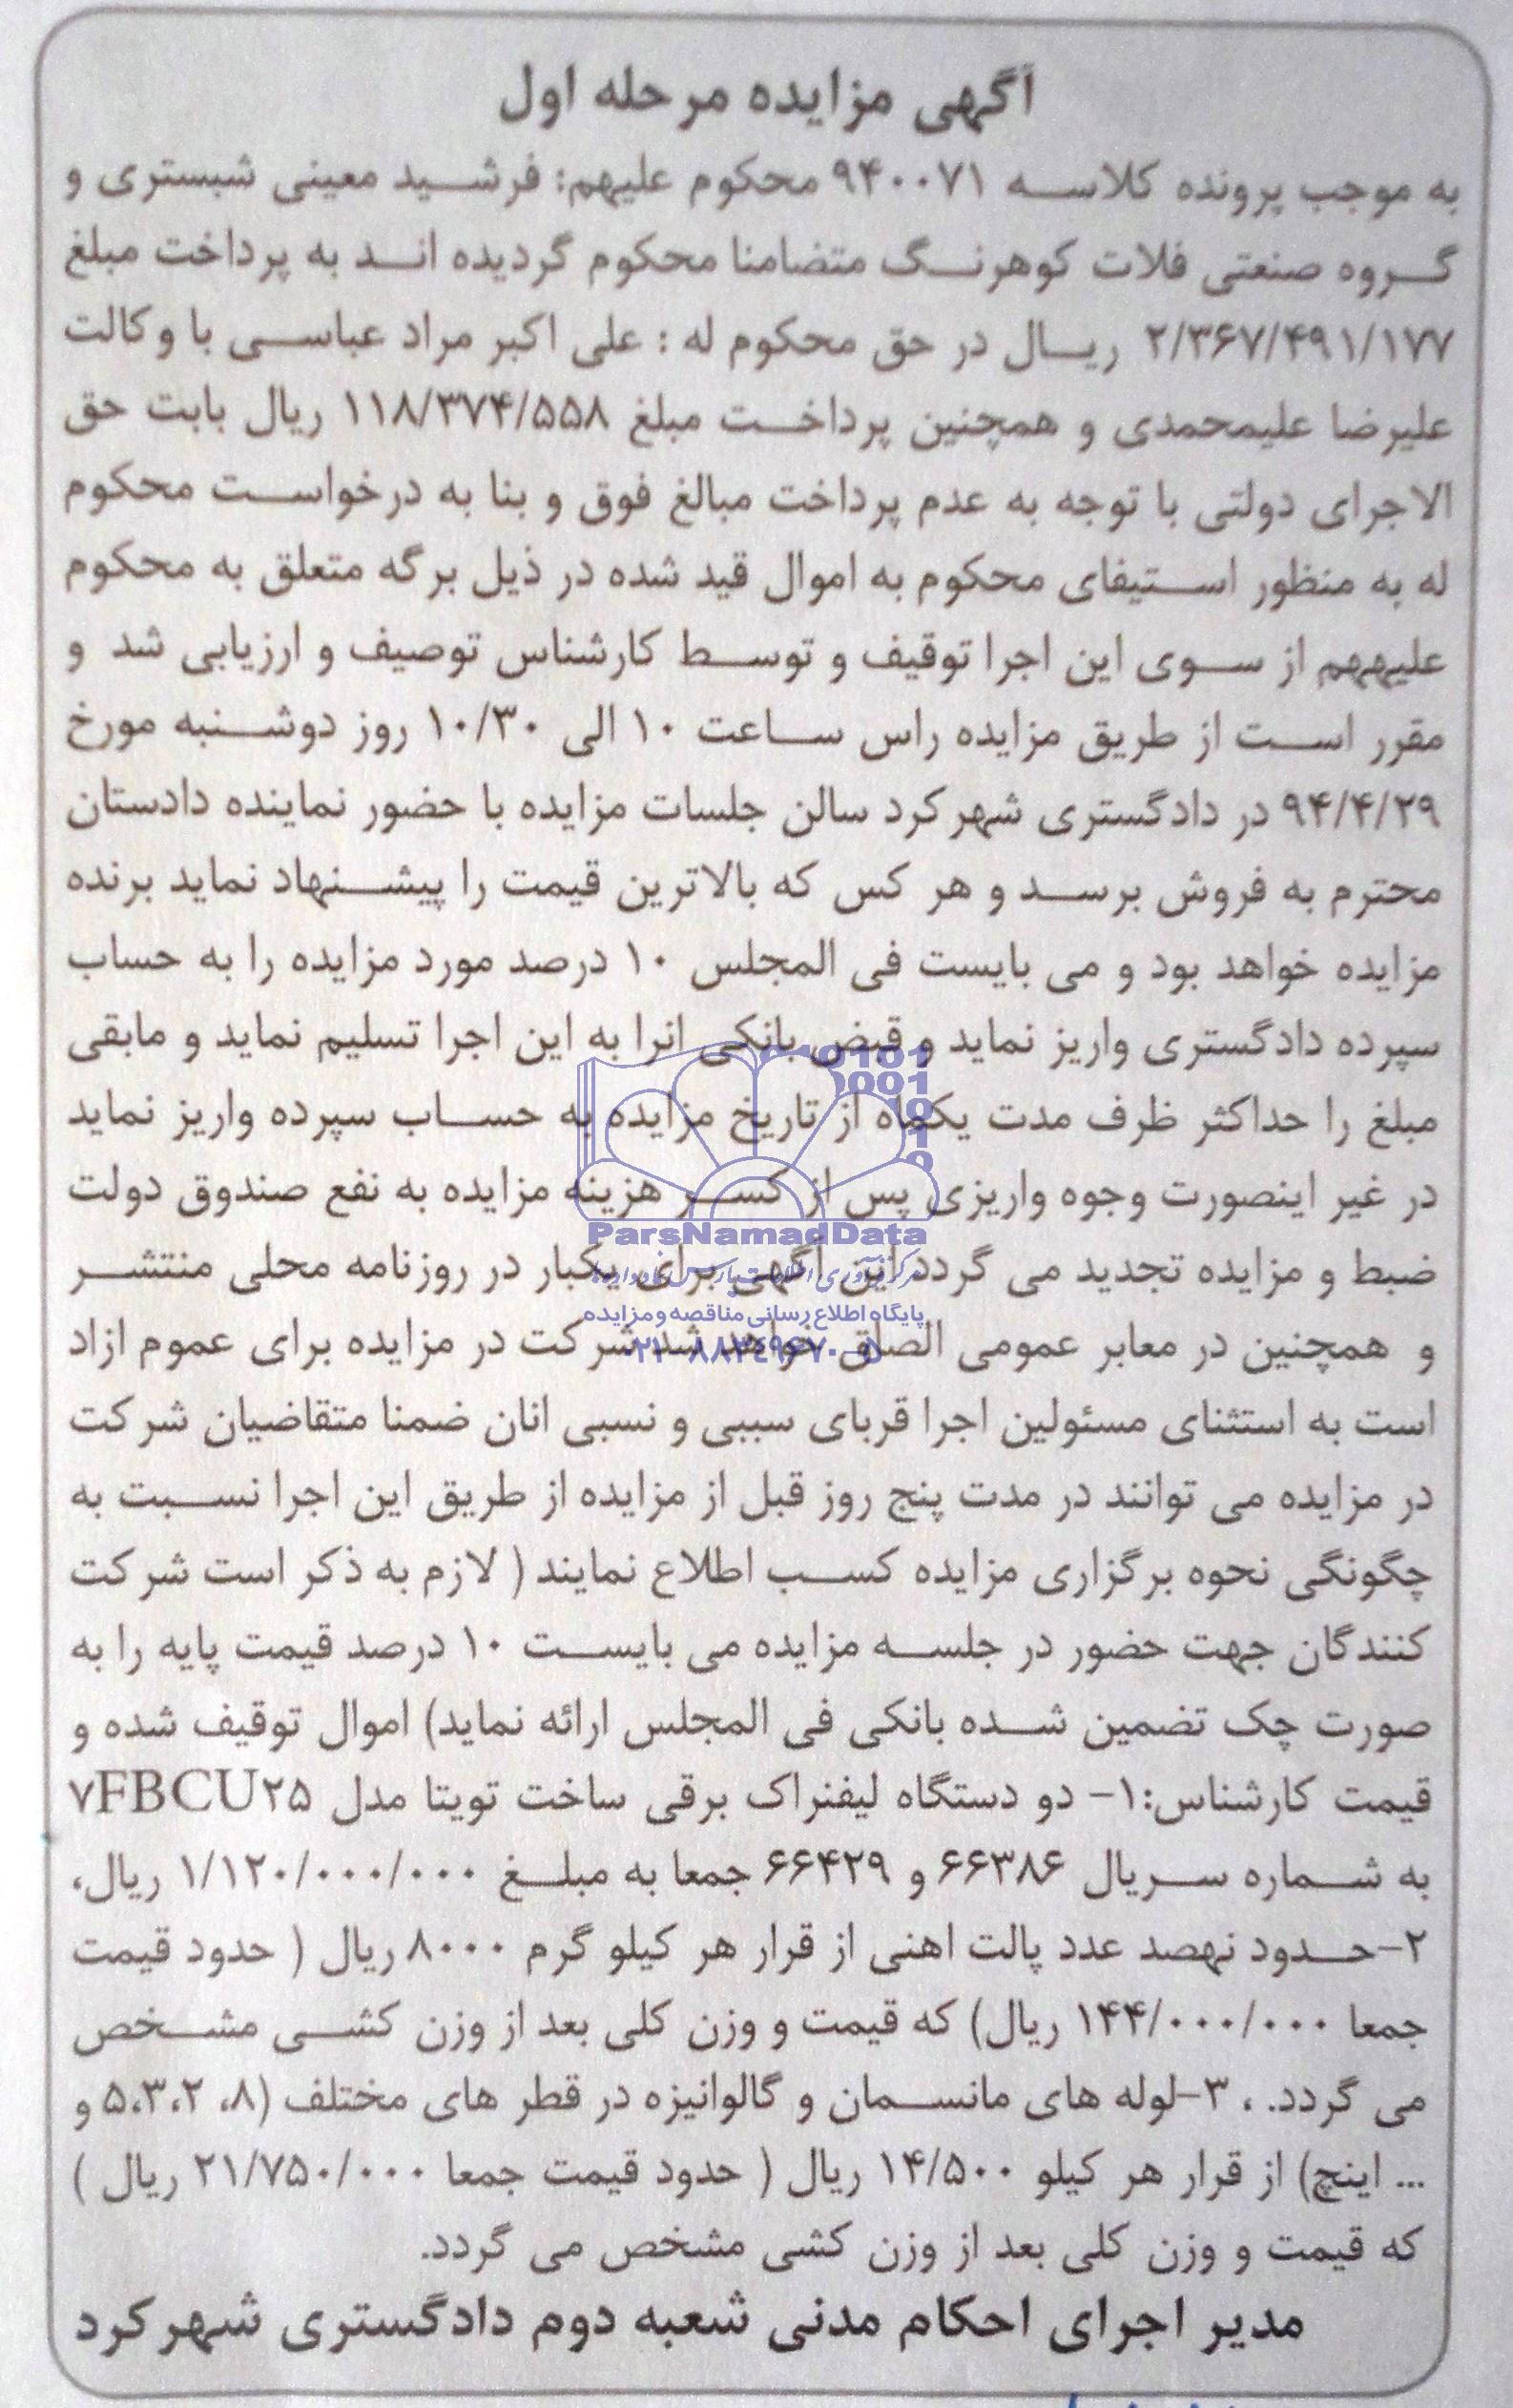 آگهی مزایده مرحله اول
به موجب پرونده کلاسه ۹۴۰۰۷۱ محکوم علیهم: فرشید معینی شبستری و
گروه صنعتی فلات کوهرنگ متضامنا محکوم گردیده اند به پرداخت مبلغ
۲/۳۶۷/۴۹۱/۱۷۷ ریال در حق محکوم له : علی اکبر مراد عباسی با وکالت
علیرضا علیمحمدی و همچنین پرداخت مبلغ ۱۱۸/۳۷۴/۵۵۸ ریال بابت حق
الاجرای دولتی با توجه به عدم پرداخت مبالغ فوق و بنا به درخواست محکوم
له به منظور استیفای محکوم به اموال قید شده در ذیل برگه متعلق به محکوم
علیههم از سوی این اجرا توقیف و توسط کارشناس توصیف و ارزیابی شد و
مقرر است از طریق مزایده راس ساعت ۱۰ الی ۱۰/۳۰ روز دوشنبه مورخ
۹۴/۴/۲۹ در دادگستری شهرکرد سالن جلسات مزایده با حضور نماینده دادستان
محترم به فروش برسد و هر کس که بالاترین قیمت را پیشنهاد نماید برنده
مزایده خواهد بود و می بایست فی المجلس ۱۰ درصد مورد مزایده را به حساب
سپرده دادگستری واریز نماید و قبض بانکی انرا به این اجرا تسلیم نماید و مابقی
مبلغ را حداکثر ظرف مدت یکماه از تاریخ مزایده به حساب سپرده واریز نماید
در غیر اینصورت وجوه واریزی پس از کسر هزینه مزایده به نفع صندوق دولت
ضبط و مزایده تجدید می گردد این آگهی برای یکبار در روزنامه محلی منتشر
و همچنین در معابر عمومی الصاق خواهد شد شرکت در مزایده برای عموم ازاد
است به استثنای مسئولین اجرا قربای سببی و نسبی انان ضمنا متقاضیان شرکت
در مزایده می توانند در مدت پنج روز قبل از مزایده از طریق این اجرا نسبت به
چگونگی نحوه برگزاری مزایده کسب اطلاع نمایند ( لازم به ذکر است شرکت
کنندگان جهت حضور در جلسه مزایده می بایست ۱۰ درصد قیمت پایه را به
صورت چک تضمین شده بانکی فی المجلس ارائه نماید) اموال توقیف شده و
قیمت کارشناس:۱- دو دستگاه لیفتراک برقی ساخت تویتا مدل ۷FBCU۲۵
به شماره سریال ۶۶۳۸۶ و ۶۶۴۲۹ جمعا به مبلغ ۱/۱۲۰/۰۰۰/۰۰۰ ریال،
۲-حدود نهصد عدد پالت اهنی از قرار هر کیلو گرم ۸۰۰۰ ریال ( حدود قیمت
جمعا ۱۴۴/۰۰۰/۰۰۰ ریال) که قیمت و وزن کلی بعد از وزن کشی مشخص
می گردد. ، ۳-لوله های مانسمان و گالوانیزه در قطر های مختلف (۸، ۲،۳،۵ و
... اینچ) از قرار هر کیلو ۱۴/۵۰۰ ریال ( حدود قیمت جمعا ۲۱/۷۵۰/۰۰۰ ریال )
که قیمت و وزن کلی بعد از وزن کشی مشخص می گردد.
مدیر اجرای احکام مدنی شعبه دوم دادگستری شهرکرد
ParsNamadData
پایگاه اطلاع رسانی مناقصه و مزایده
۰۲۱-۸۸۳۴۹۶۷۰-۵